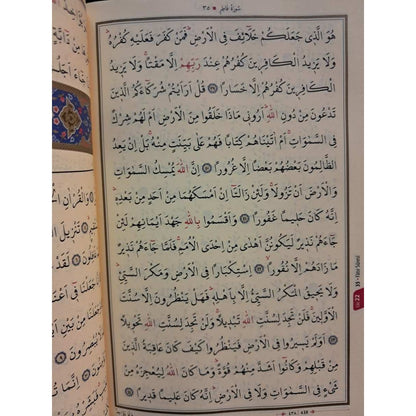 سُورَةُ فَاطِرٍ ٣٥
هُوَ الَّذ۪ي جَعَلَكُمْ خَلَٓائِفَ فِي الْاَرْضِۜ فَمَنْ كَفَرَ فَعَلَيْهِ كُفْرُهُۜ
وَلَا يَز۪يدُ الْكَافِر۪ينَ كُفْرُهُمْ عِنْدَ رَبِّهِمْ اِلَّا مَقْتًاۚ وَلَا يَز۪يدُ
الْكَافِر۪ينَ كُفْرُهُمْ اِلَّا خَسَارًا ﴿٣٩﴾ قُلْ اَرَاَيْتُمْ شُرَكَٓاءَكُمُ الَّذ۪ينَ
تَدْعُونَ مِنْ دُونِ اللّٰهِۜ اَرُون۪ي مَاذَا خَلَقُوا مِنَ الْاَرْضِ اَمْ لَهُمْ شِرْكٌ
فِي السَّمٰوَاتِۚ اَمْ اٰتَيْنَاهُمْ كِتَابًا فَهُمْ عَلٰى بَيِّنَتٍ مِنْهُۚ بَلْ اِنْ يَعِدُ
الظَّالِمُونَ بَعْضُهُمْ بَعْضًا اِلَّا غُرُورًا ﴿٤٠﴾ اِنَّ اللّٰهَ يُمْسِكُ السَّمٰوَاتِ
وَالْاَرْضَ اَنْ تَزُولَاۚ وَلَئِنْ زَالَتَٓا اِنْ اَمْسَكَهُمَا مِنْ اَحَدٍ مِنْ بَعْدِه۪ۜ
اِنَّهُ كَانَ حَل۪يمًا غَفُورًا ﴿٤١﴾ وَاَقْسَمُوا بِاللّٰهِ جَهْدَ اَيْمَانِهِمْ لَئِنْ
جَٓاءَهُمْ نَذ۪يرٌ لَيَكُونُنَّ اَهْدٰى مِنْ اِحْدَى الْاُمَمِۚ فَلَمَّا جَٓاءَهُمْ نَذ۪يرٌ
مَا زَادَهُمْ اِلَّا نُفُورًاۙ ﴿٤٢﴾ اِسْتِكْبَارًا فِي الْاَرْضِ وَمَكْرَ السَّيِّئِۜ
وَلَا يَح۪يقُ الْمَكْرُ السَّيِّئُ اِلَّا بِاَهْلِه۪ۜ فَهَلْ يَنْظُرُونَ اِلَّا سُنَّتَ
الْاَوَّل۪ينَۚ فَلَنْ تَجِدَ لِسُنَّتِ اللّٰهِ تَبْد۪يلًاۚ وَلَنْ تَجِدَ لِسُنَّتِ اللّٰهِ تَحْو۪يلًا
﴿٤٣﴾ اَوَلَمْ يَس۪يرُوا فِي الْاَرْضِ فَيَنْظُرُوا كَيْفَ كَانَ عَاقِبَةُ الَّذ۪ينَ
مِنْ قَبْلِهِمْ وَكَانُٓوا اَشَدَّ مِنْهُمْ قُوَّةًۜ وَمَا كَانَ اللّٰهُ لِيُعْجِزَهُ مِنْ
شَيْءٍ فِي السَّمٰوَاتِ وَلَا فِي الْاَرْضِۜ اِنَّهُ كَانَ عَل۪يمًا قَد۪يرًا ﴿٤٤﴾
٤٣٨ 438
Cüz 22
35 • Fâtır Sûresi
وَالْقُرْاٰنِ
تَنْز۪يلَ
لَقَدْ
جَعَلْنَا ف۪ٓي
جَعَلْنَا مِنْ بَيْنِ
يُبْصِرُونَ
اِنَّمَا